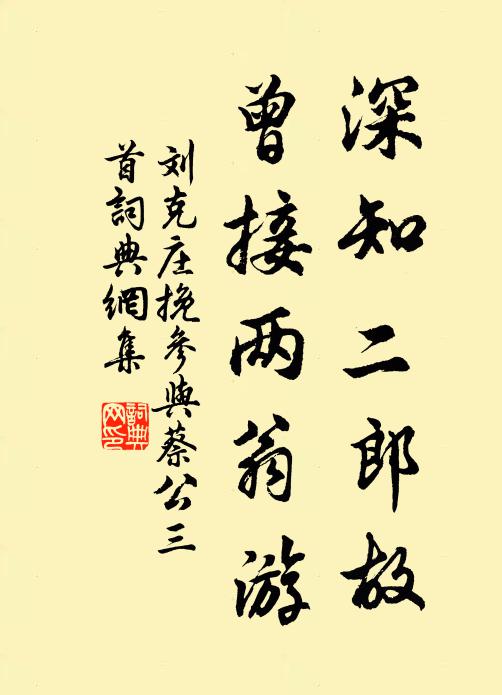 深知二郎故
曾接两翁游
刘克庄挽参与蔡公三
首詞典網集
詞典网印